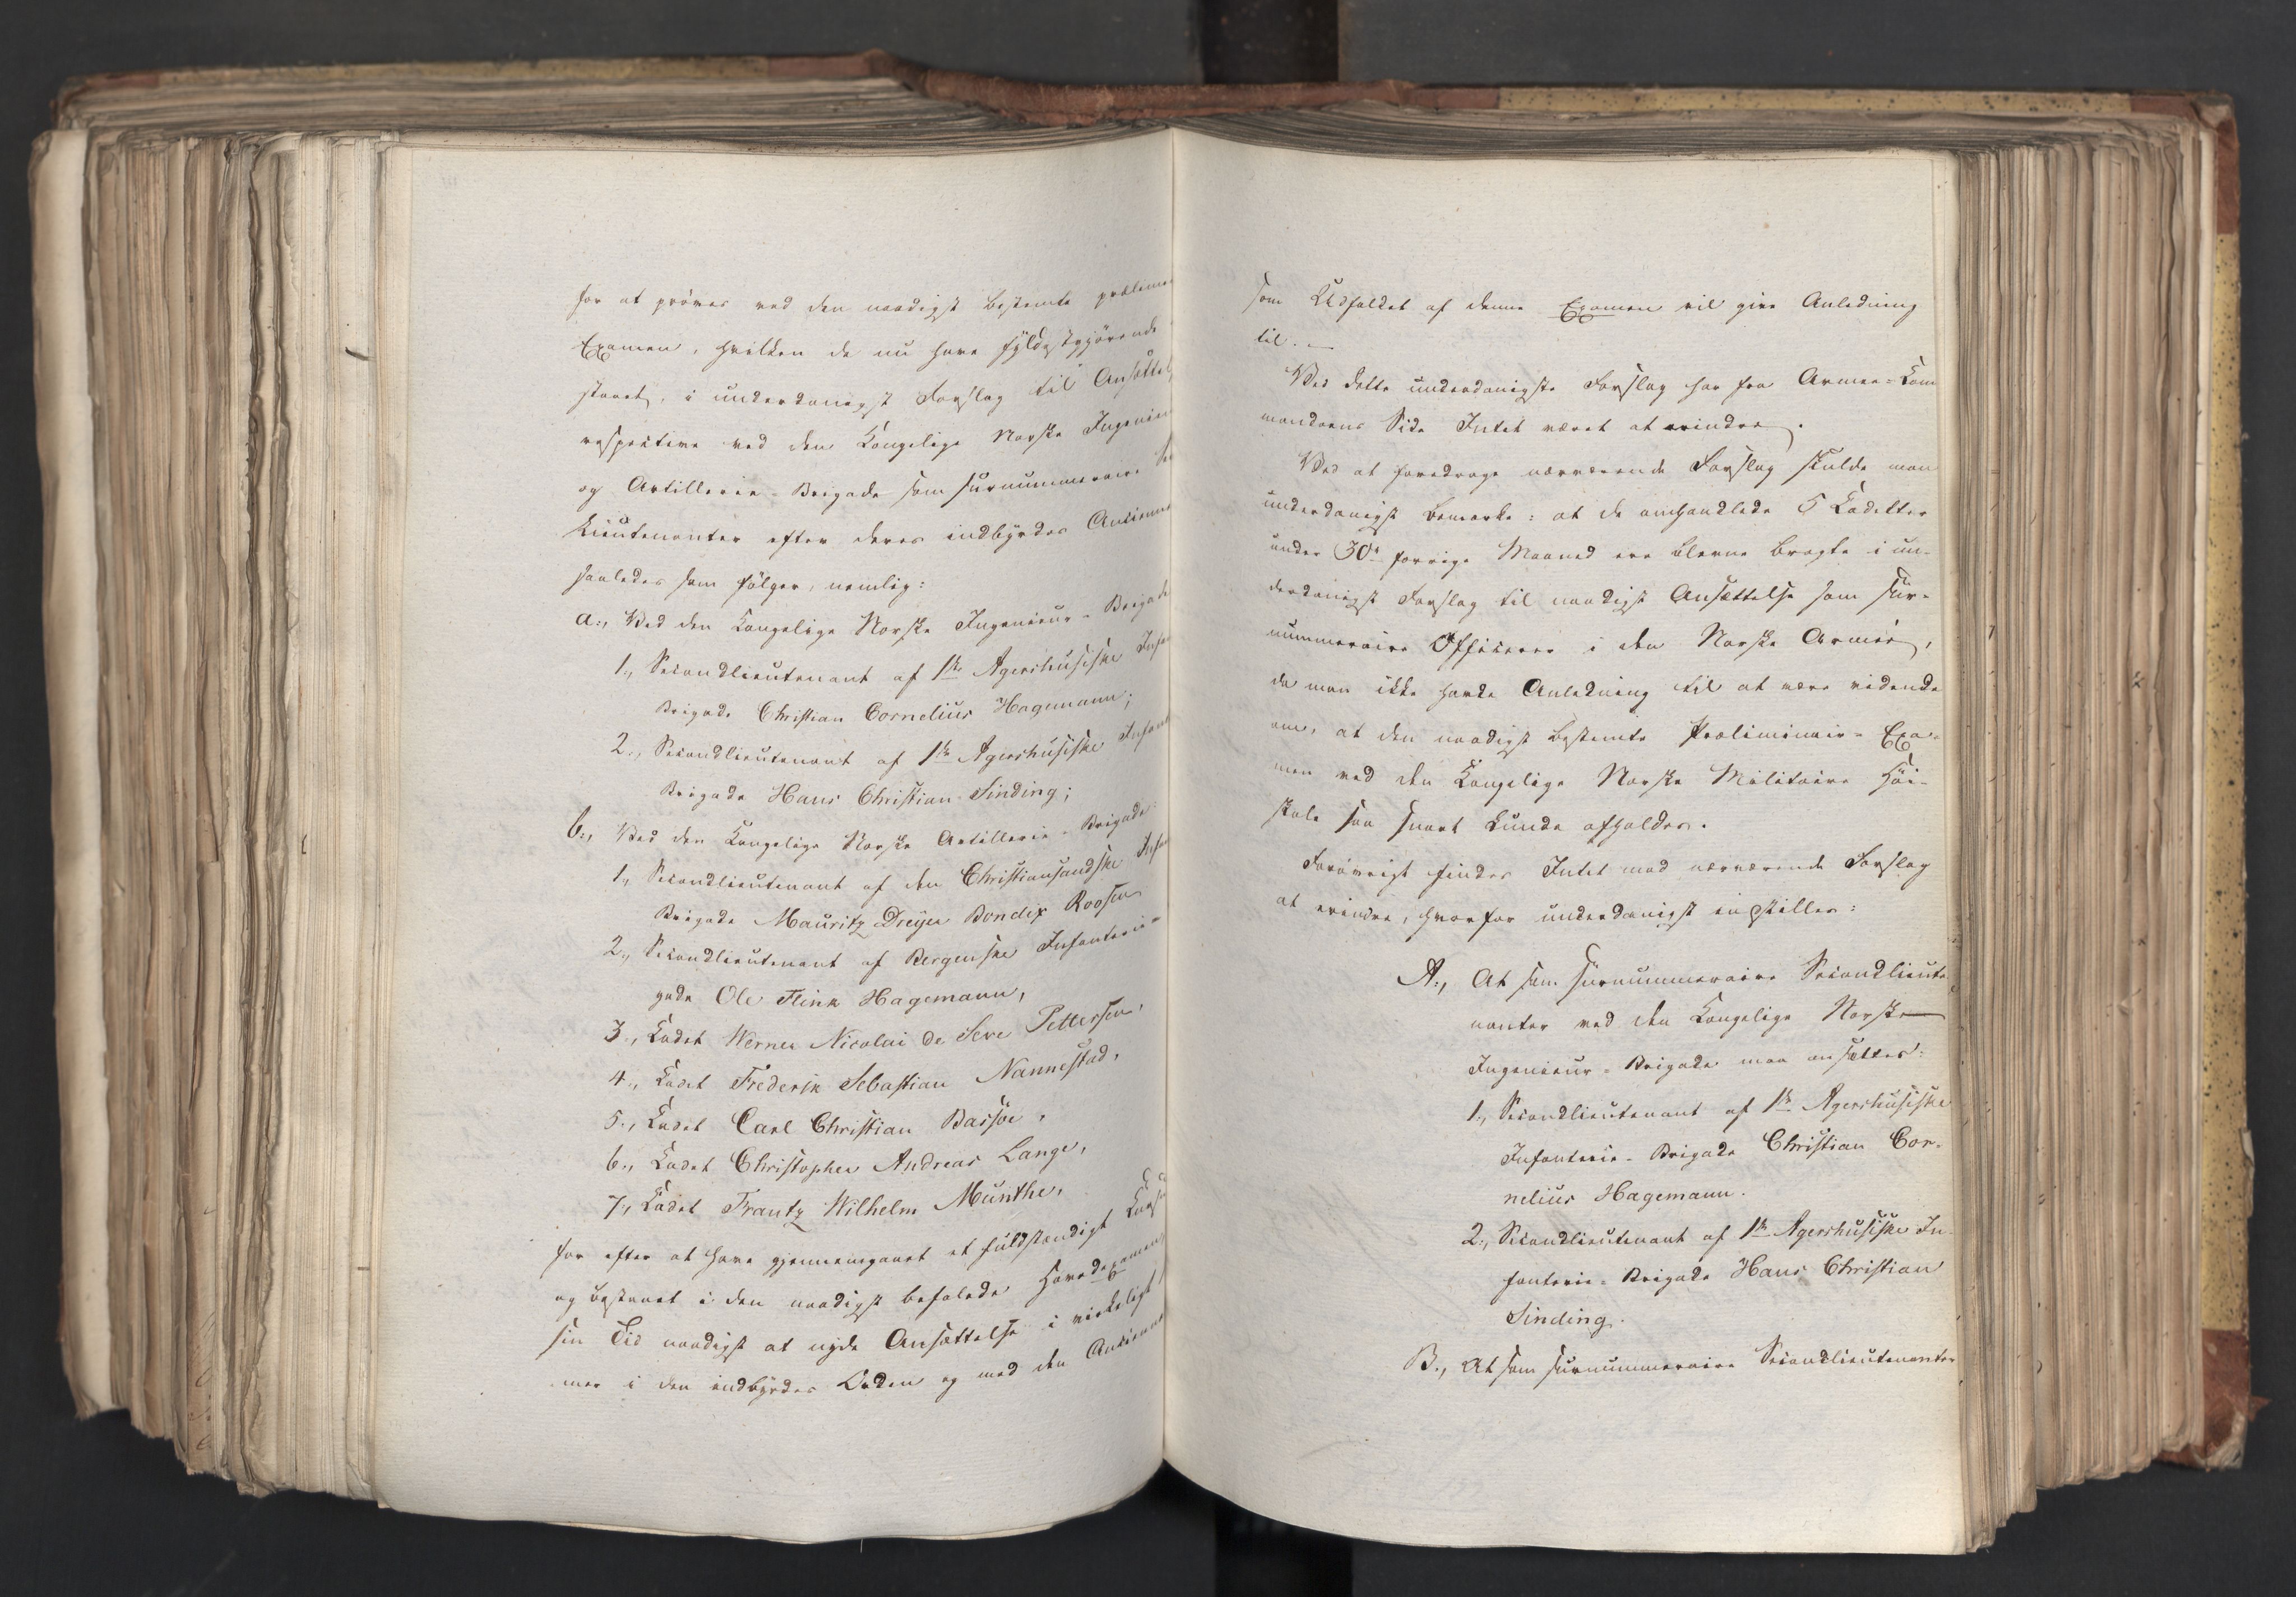 for at prøves ved den naadigst bestemte prælimi
Examen, hvilken de nu have fyldestgjørende
staaet, i underdanigst Forslag til Ansættel
respective ved den Kongelige Norske Ingenieu
og Artillerie-Brigade som surnummeraire Se
Lieutenanter efter deres indbyrdes Ancienne
saaledes som følger, nemlig:
a., Ved den Kongelige Norske Ingenieur-Brigade
1., Secondlieutenant af 1ste Agershusiske Infan
Brigade Christian Cornelius Hagemann;
2., Secondlieutenant af 1ste Agershusiske Infant
Brigade Hans Christian Sinding;
b., Ved den Kongelige Norske Artillerie-Brigade
1., Secondlieutenant af den Christiansandske Infan
Brigade Mauritz Dreyer Bondix Roosen
2., Secondlieutenant af Bergenske Infanterie-
gade Ole Flink Hagemann,
3., Cadet Werner Nicolai de Seve Pettersen,
4., Cadet Frederik Sebastian Nannestad,
5., Cadet Carl Christian Bassøe,
6., Cadet Christopher Andreas Lange,
7., Cadet Frantz Wilhelm Munthe,
for efter at have gjennemgaaet et fuldstændigt Cursu
og bestaaet i den naadigst befalede Hovedexamen
sin Tid naadigst at nyde Ansættelse i virkeligt
mer i den indbyrdes Orden og med den Ancienne
som Udfaldet af denne Examen vil give Anledning
til. —
Ved dette underdanigste Forslag har fra Armee-Com
mandoens Side Intet været at erindre.
Ved at foredrage nærværende Forslag skulde man
underdanigst bemærke: at de omhandlede 5 Cadetter
under 30te forrige Maaned ere blevne bragte i un-
derdanigst Forslag til naadigst Ansættelse som sur-
nummeraire Officerer i den Norske Armée,
da man ikke havde Anledning til at være vidende
om, at den naadigst bestemte Præliminair-Exa-
men ved den Kongelige Norske Militaire Høi-
skole saa snart kunde afholdes.
Forøvrigt findes Intet mod nærværende Forslag
at erindre, hvorfor underdanigst indstilles:
A., At som surnummeraire Secondlieute
nanter ved den Kongelige Norske
Ingenieur-Brigade maa ansættes:
1., Secondlieutenant af 1ste Agershusiske
Infanterie-Brigade Christian Cor-
nelius Hagemann.
2., Secondlieutenant af 1ste Agershusiske In-
fanterie-Brigade Hans Christian
Sinding.
B., At som surnummeraire Secondlieutenanter